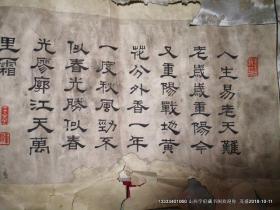 人生易老天難
老歲歲重陽今
又重陽戰地黃
花分外香一年
一度秋風勁不
似春光勝似春
光廖廓江天萬
里霜
2018-10-11